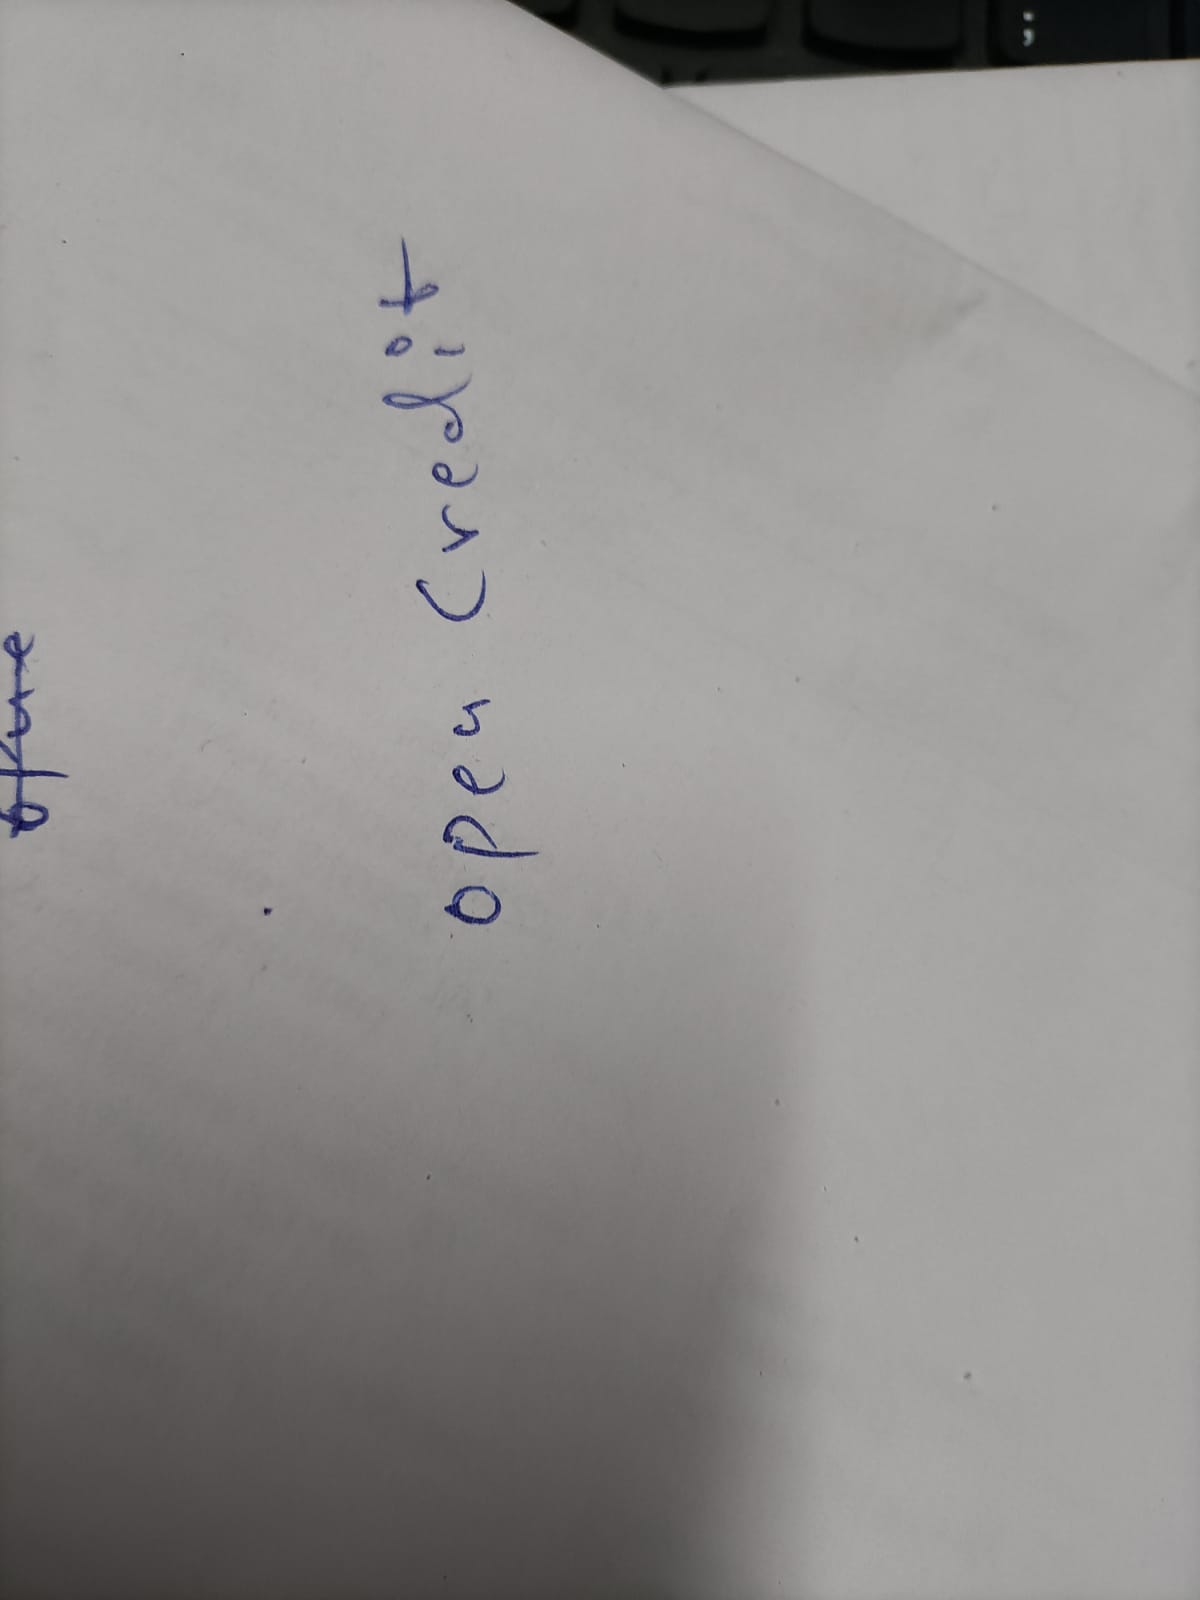 open Credit